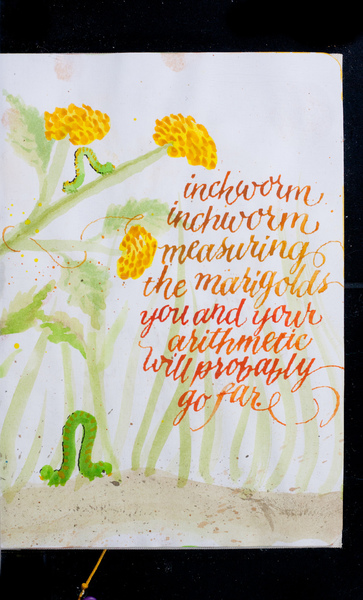 inchworm
inchworm
measuring
the marigolds
you and your
arithmetic
will probably
go far